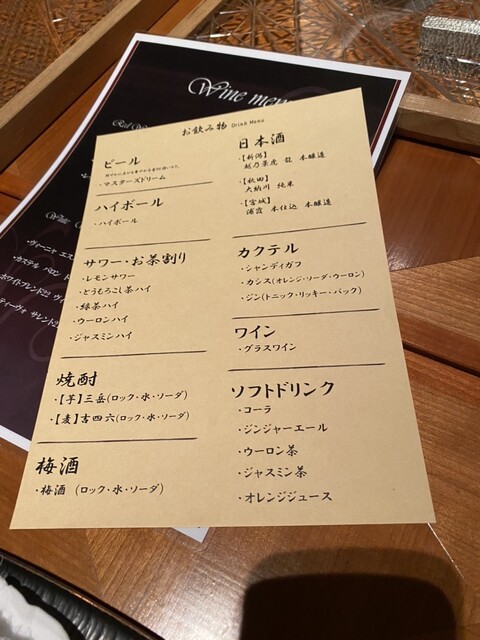 Wine menu
お飲み物 Drink Menu
ビール
・マスターズドリーム
ハイボール
・ハイボール
サワー・お茶割り
・レモンサワー
・とうもろこし茶ハイ
・緑茶ハイ
・ウーロンハイ
・ジャスミンハイ
焼酎
・【芋】三岳(ロック・水・ソーダ)
・【麦】吉四六(ロック・水・ソーダ)
梅酒
・梅酒 (ロック・水・ソーダ)
日本酒
・【新潟】
越乃景虎 龍 本醸造
・【秋田】
大納川 純米
・【宮城】
浦霞 本仕込 本醸造
カクテル
・シャンディガフ
・カシス(オレンジ・ソーダ・ウーロン)
・ジン(トニック・リッキー・バック)
ワイン
・グラスワイン
ソフトドリンク
・コーラ
・ジンジャーエール
・ウーロン茶
・ジャスミン茶
・オレンジジュース